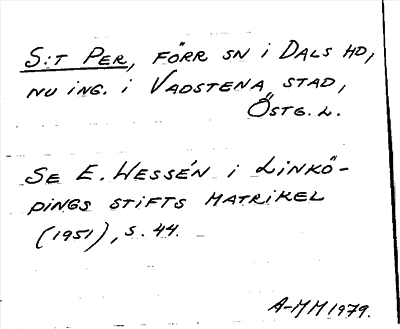 S:t Per, förr sn i Dals hd,
nu ing. i Vadstena stad,
Östg. L.
Se E. Wessén i Linkö-
pings stifts matrikel
(1951), s. 44.
A-MM 1979.